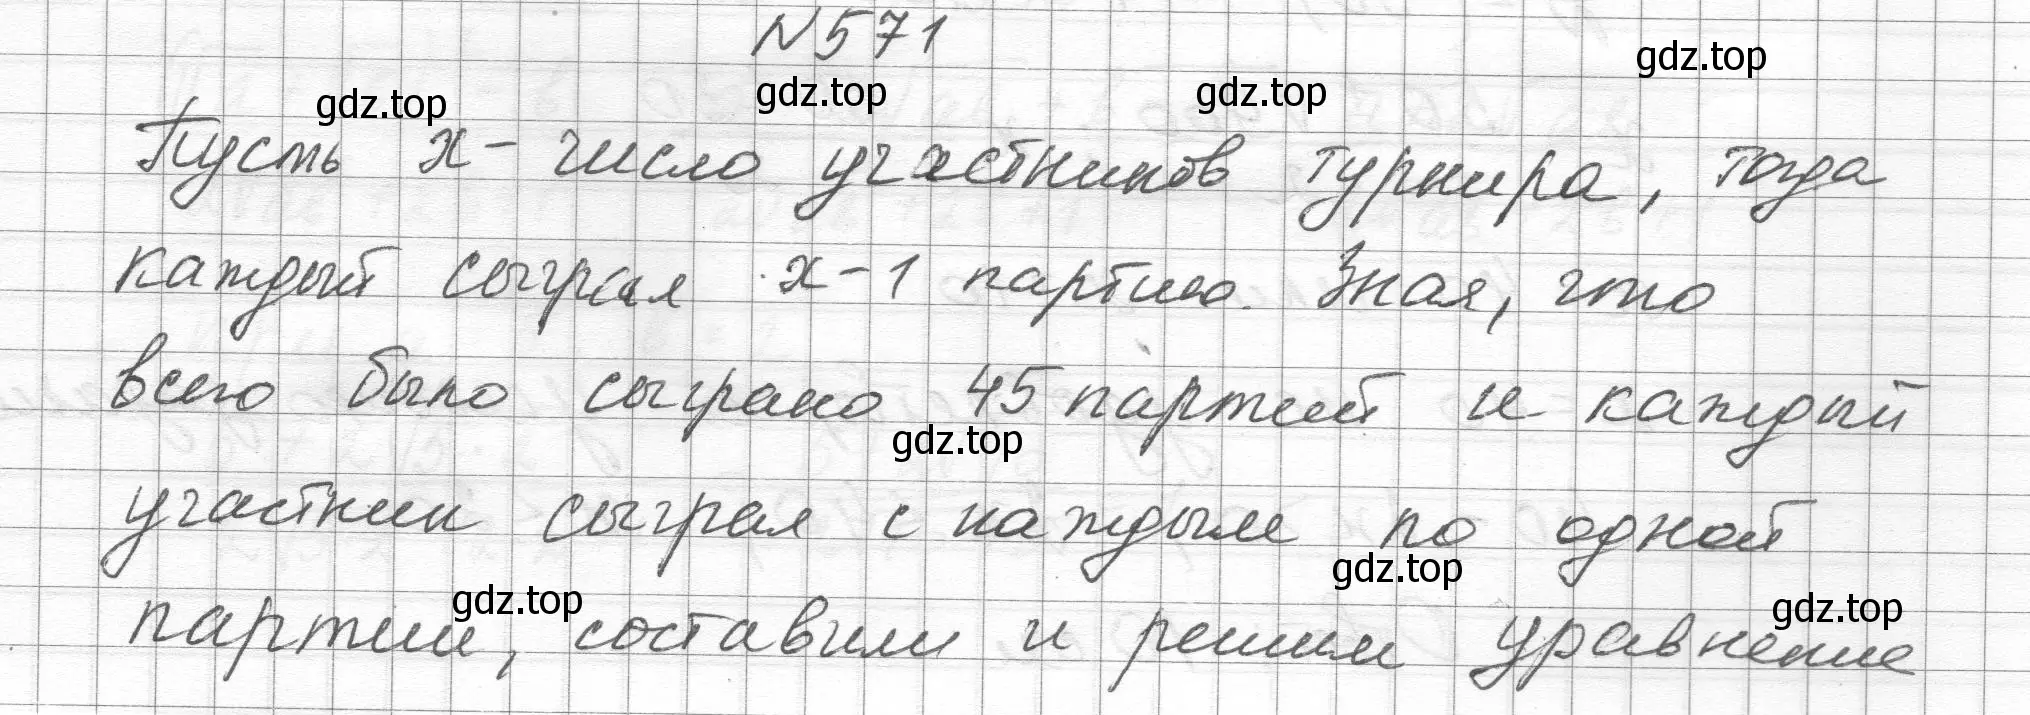 №571
gdz.top
gdz.top gdz.top gdz.top
Пусть x - число участников турнира, тогда
каждый сыграл x-1 партию. Зная, что
всего было сыграно 45 партий и каждый
gdz.top
участник сыграл с каждым по одной
gdz.top gdz.top gdz.top
партии, составим и решим уравнение